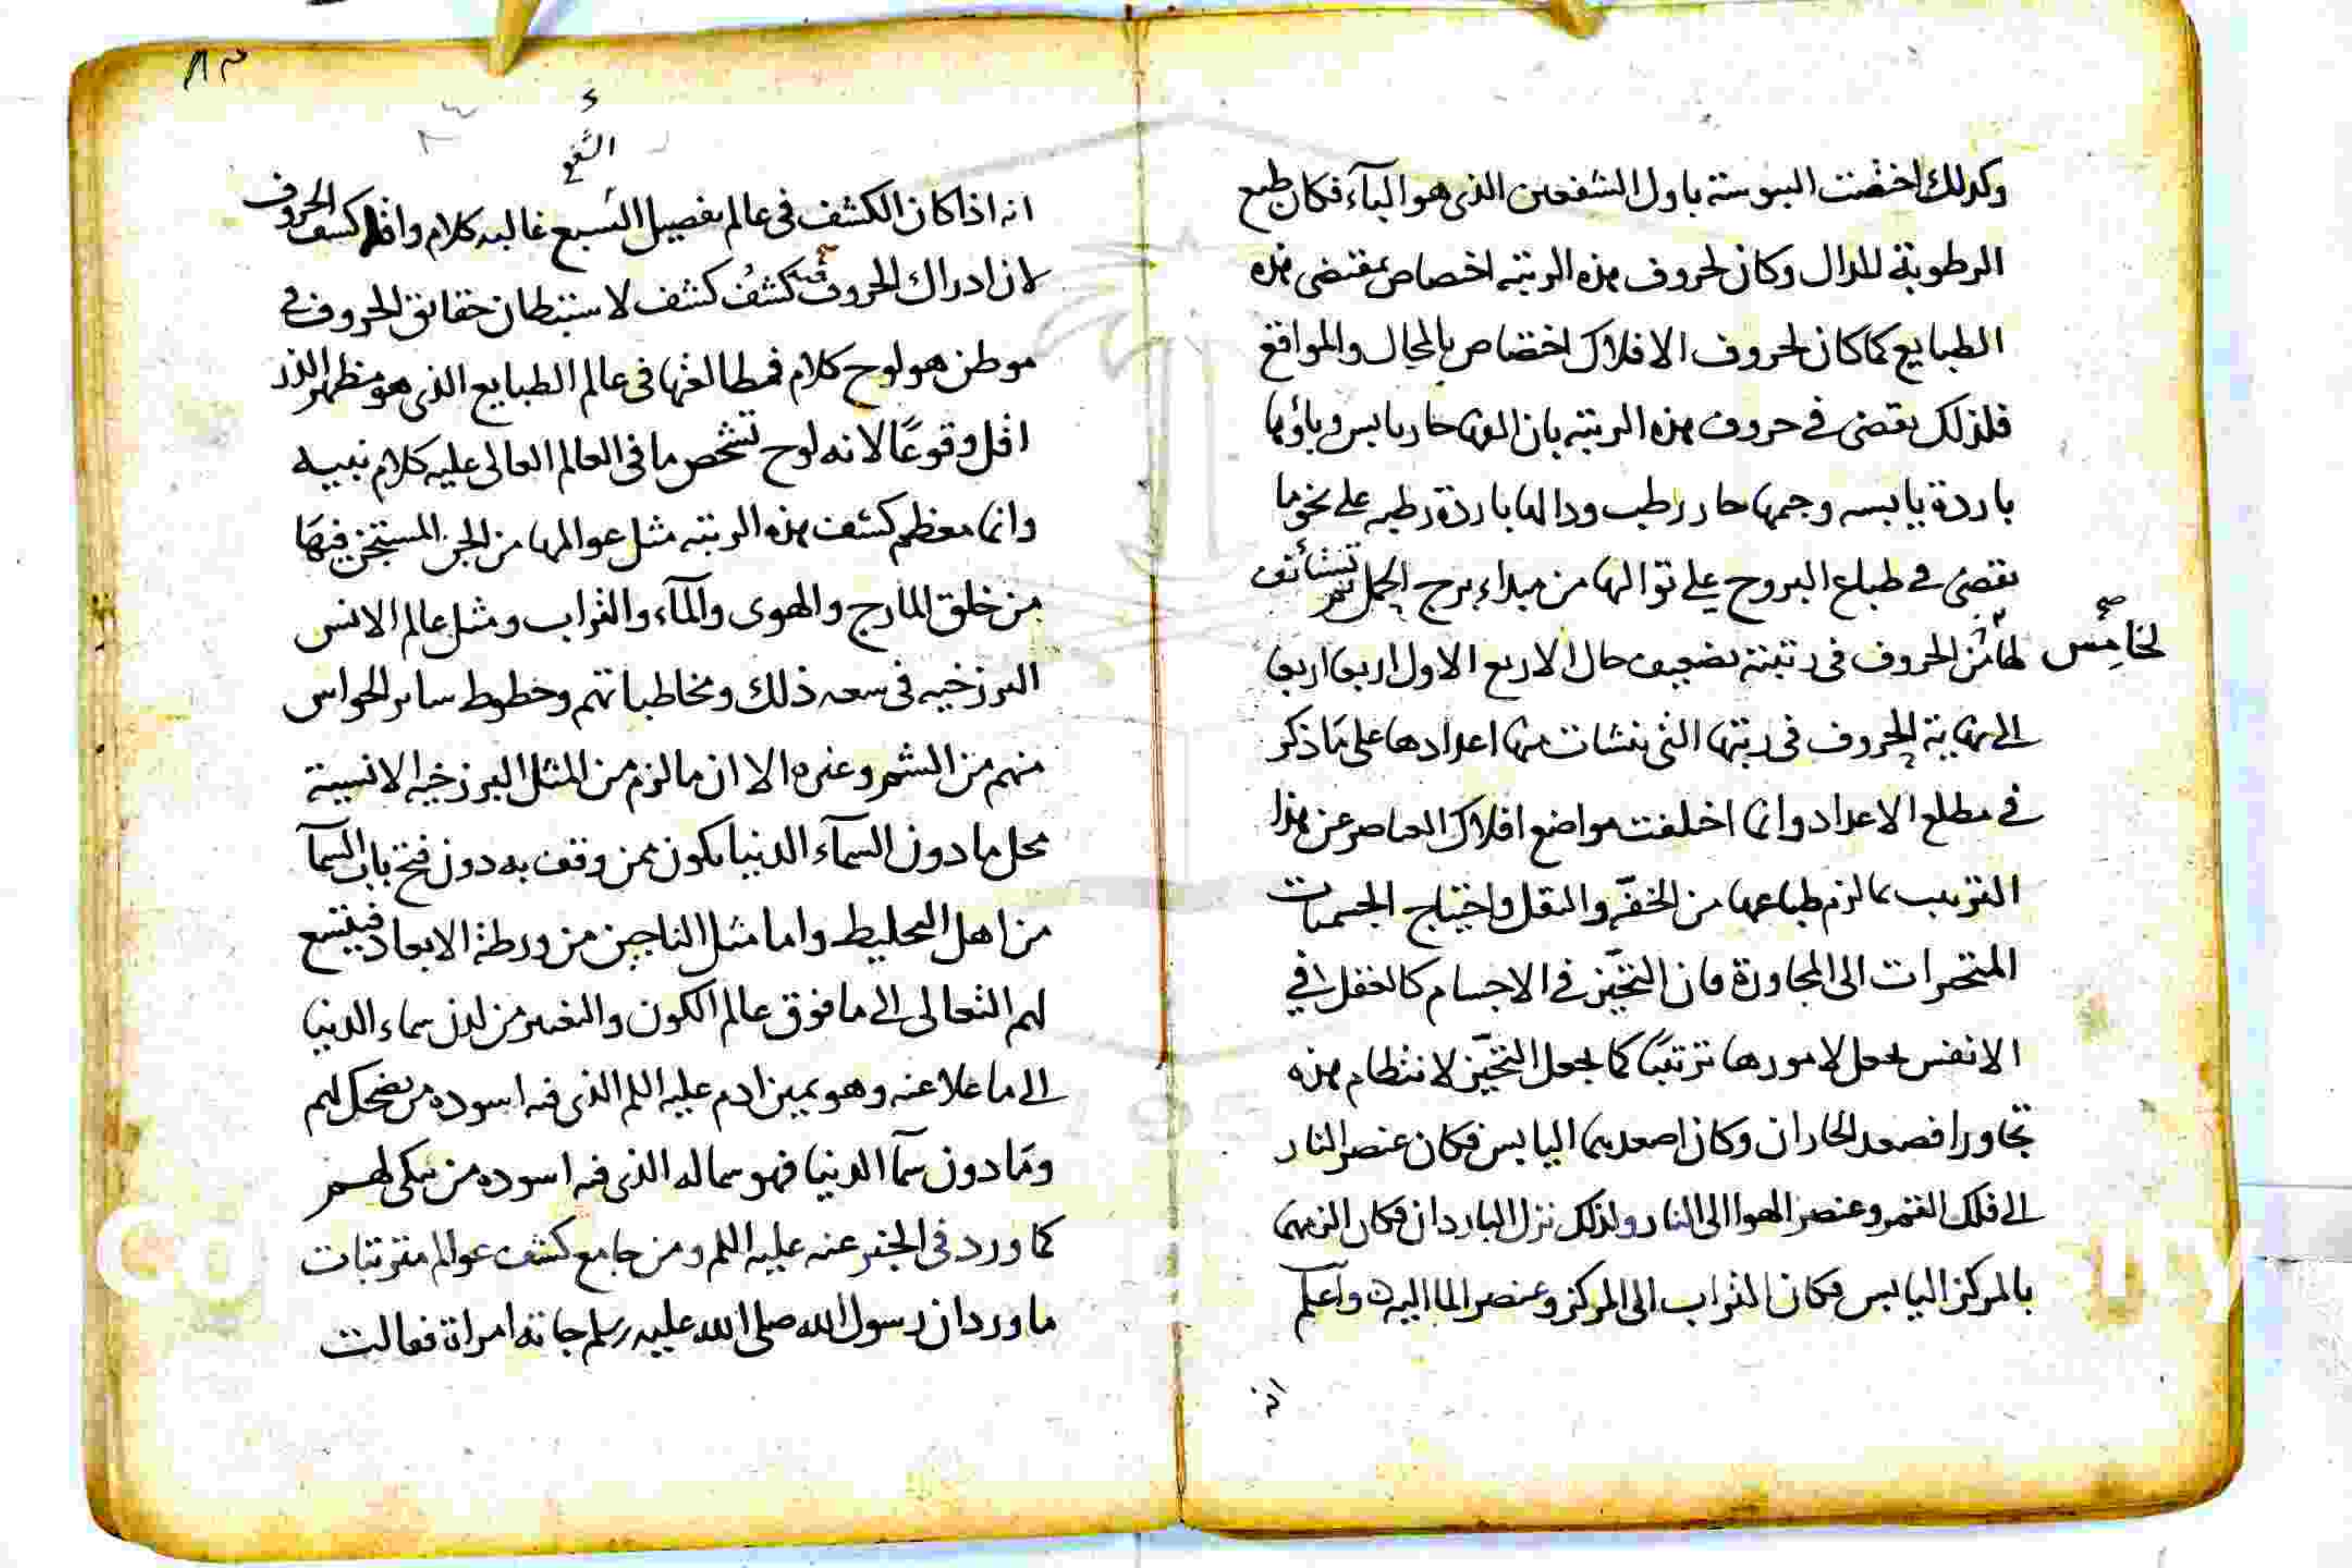 وكذلك اختضت اليبوسة باول الشفعين الذى هو البآء فكان طبع
الرطوبة للدال وكان لحروف هذه الرتبة اختصاص بمقتضى هذه
الطبايع كما كان لحروف الافلاك اختصاص بالمحال والمواقع
فلذلك يقضى في حروف هذه الرتبة بان الفها حار يابس وباؤها
باردة يابسه وجيمها حار رطب ودالها باردة رطبه على نحو ما
يقضى في طباع البروج على تواليها من مبداء برج الحمل ثم تستأنف
لخامس الحروف فى رتبته تضعيف حال الاربع الاول اربعا اربعا
لخامس
صح
الى نهاية الحروف فى رتبتها التى نشات منها اعدادها على مَا ذكر
في مطلع الاعداد وانما اختلفت مواضع افلاك العناصر عن هذا
الترتيب بما لزم طباعها من الخفّة والثقل واحتياج الجسميات
المتحيزات الى المجاورة فان التحيّز في الاجسام كالغفل في
الانفس يجعل لامورها ترتيبًا كما يجعل التحيّز لانتظام هذه
تجاورا فصعد الحاران وكان اصعدهما اليابس فكان عنصر النار
الى فلك القمر وعنصر الهوا الى النار ولذلك نزل الباردان فكان الزمهما
بالمركز اليابس فكان التراب الى المركز وعنصر الما اليه وآعلم
انه
٨٣
التسع
انه اذا كان الكشف فى عالم تفصيل السبع غالبه كلام واقله كشف الحروف
لان ادراك الحروف فيه كشفُ كشف لاستبطان حقائق الحروف في
موطن هو لوح كلام فمطالعتها فى عالم الطبايع الذى هو مظهر
اقل وقوعًا لانه لوح تشخص ما فى العالم العالى عليه كلام نفسه
وانما معظم كشف هذه الرتبة مثل عوالمها من الجن المستجن فيهَا
من خلق المارج والهوى والمآء والتراب ومثل عالم الانس
البرزخيه فى سعه ذلك ومخاطباتهم وخطوط ساير الحواس
منهم من الشم وغيره الا ان ما لزم من المثل البرزخيه الانسية
محل ما دون السمآء الدنيا يكون ممن وقف به دون فتح باب السمآ
من اهل التخليط واما مثل الناجين من ورطة الابعاد فيتسع
لهم التعالى الى ما فوق عالم الكون والتغير من لدن سماء الدنيا
الى ما علا عنه وهو يمين ادم عليه السلم الذى فيه اسوده من يضحك لهم
ومَا دون سمآ الدنيا فهو شماله الذى فيه اسوده من يبكى لهم
كما ورد فى الخبر عنه عليه السلم ومن جامع كشف عوالم مترتبات
ما ورد ان رسول الله صلى الله عليه وسلم جاته امراة فقالت